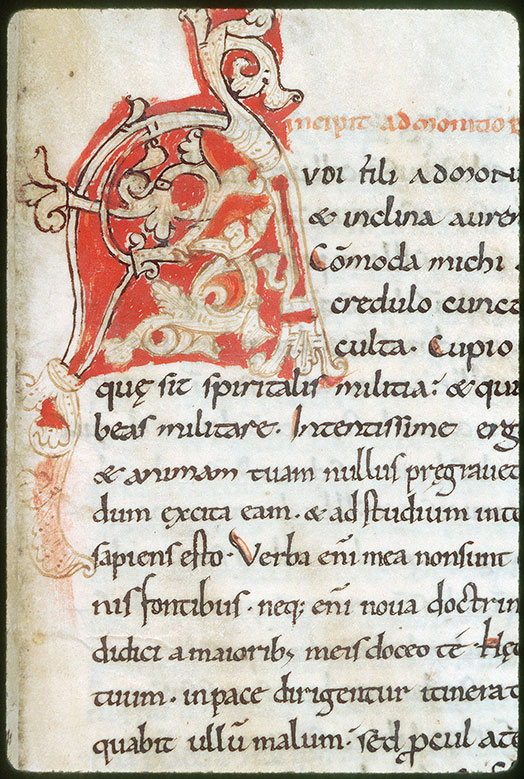 incipit admonitio
AUDI fili admon
& inclina auren
Cōmoda michi
credulo cunct
culta. Cupio
quę sit spiritalis militia: & qu
beas militare. Intentissime erg
& animam tuam nullus pręgravet
dum excita eam. & ad studium inte
sapiens esto. Verba eni̅ mea non sunt
nis fontibus. neq; eni̅ noua doctrin
didici a maiorib; meis doceo te̅ Hęc
tuum. in pace dirigentur itinera t
quabit ullu̅ malum. sed ꝓcul a te